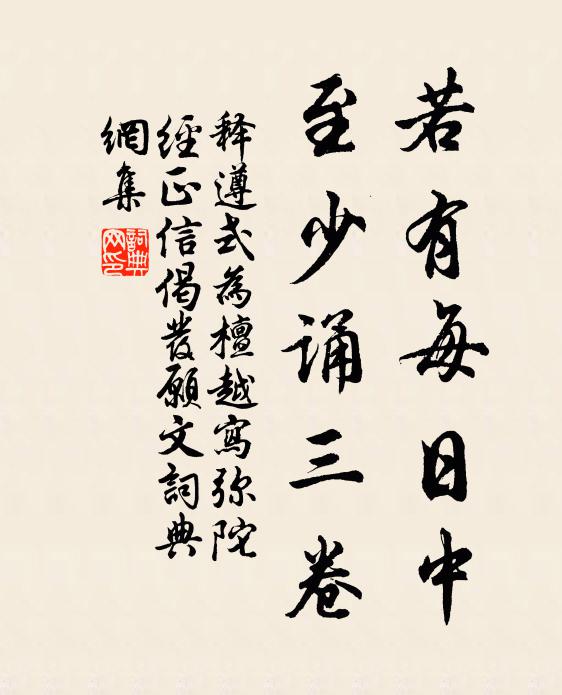 若有每日中
至少诵三卷
释遵式為檀越寫弥陀
經正信偈發願文詞典
網集
詞典網印